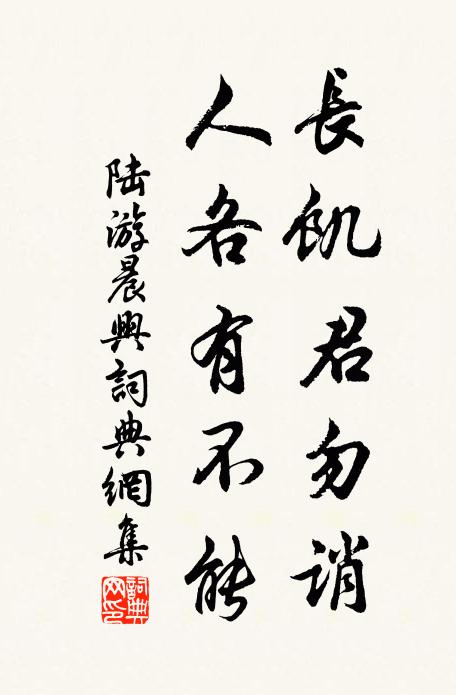 長飢君勿誚
人各有不能
陆游晨興詞典網集
詞典网印